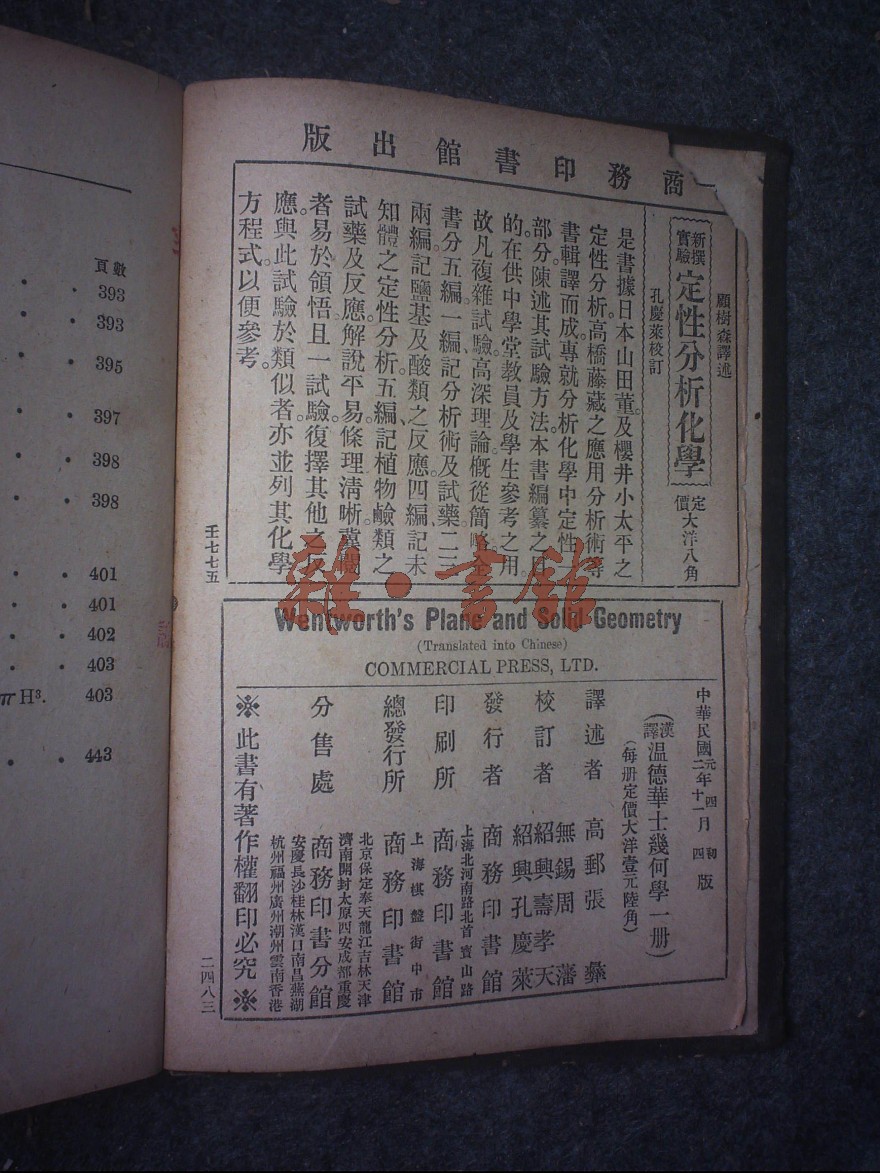 商務印書館出版
新撰實驗定性分析化學
定價大洋八角
顧樹森譯述
孔慶萊校訂
是書據日本山田董。及櫻井小太平之
定性分析。高橋藤藏之應用分析術等
書輯譯而成。專就分析化學中定性
部分。陳述其試驗方法。本書編纂之
的。在供中學堂教員及學生參考之用。
故凡複雜試驗。高深理論。概從簡略。全
書分五編。一編記分析術及試藥。二三
兩編記鹽基及酸類之反應。四編記未
知體之定性分析。五編記植物鹼類之
試藥及反應。解說平易。條理清晰。冀閱
者易於領悟。且一試驗。復擇其他之反
應與此試驗於類似者。亦並列其化學
方程式以便參考。
壬七七五
Wentworth's Plane and Solid Geometry
(Translated into Chinese)
COMMERCIAL PRESS, LTD.
中華民國元年四月初版
二年十一月四版
(漢譯溫德華士幾何學一册)
(每册定價大洋壹元陸角)
譯述者 高郵張彝
校訂者 無錫周藩
紹興壽孝天
紹興孔慶萊
發行者 商務印書館
上海北河南路北首寶山路
印刷所 商務印書館
上海棋盤街中市
總發行所 商務印書館
北京保定奉天龍江吉林天津
濟南開封太原西安成都重慶
分售處 商務印書分館
安慶長沙桂林漢口南昌蕪湖
杭州福州廣州潮州雲南香港
※此書有著作權翻印必究※
二四八三
頁數
393
393
395
397
398
398
401
401
402
403
π H³. 403
443
雜·書館